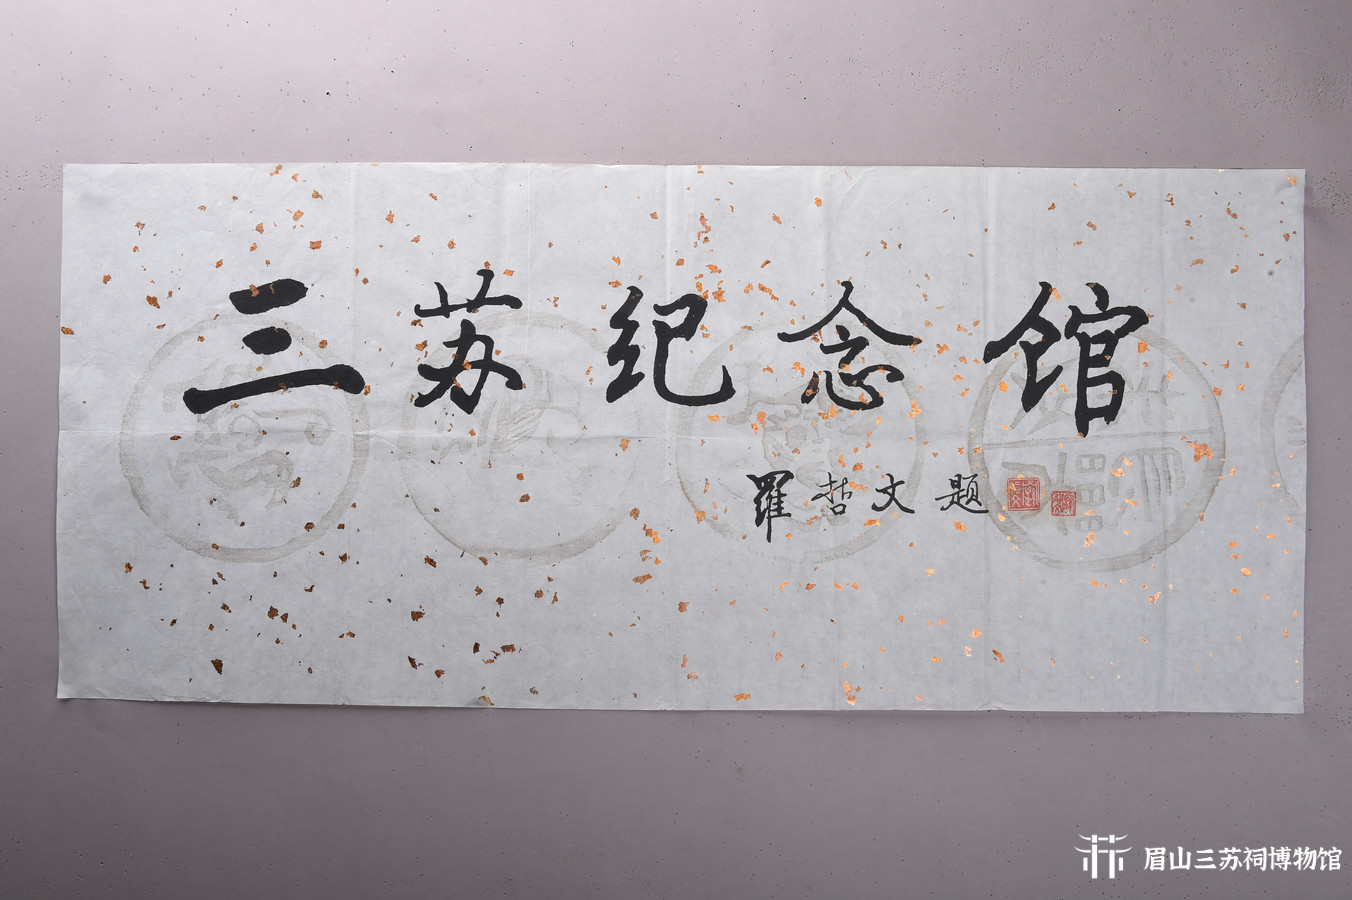 三苏纪念馆
羅哲文题
眉山三苏祠博物馆